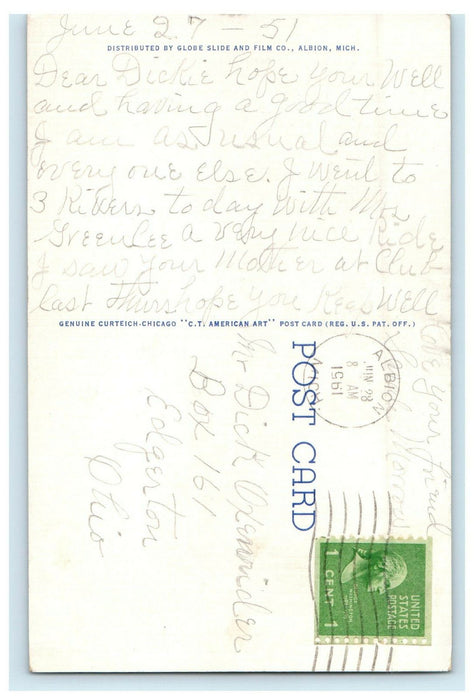 June 27-51
DISTRIBUTED BY GLOBE SLIDE AND FILM CO., ALBION, MICH.
Dear Dickie hope your Well
and having a good time
I am as usual and
every one else. I went to
3 Rivers to day with Mrs
GreenLee a very nice Ride
I saw your Mother at Club
last Thurs hope you Keep Well
GENUINE CURTEICH-CHICAGO "C.T. AMERICAN ART" POST CARD (REG. U.S. PAT. OFF.)
Love your friend
POST CARD
ALBION
JUN 28
8 AM
1951
Mr Dick Oxenrider
Box 161
Edgerton
Ohio
UNITED
STATES
POSTAGE
1 CENT 1